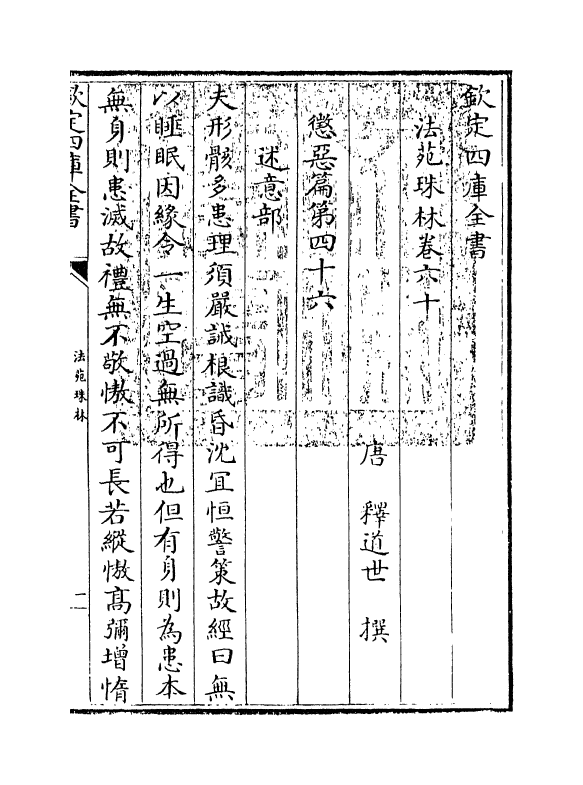 欽定四庫全書
法苑珠林卷六十
唐 釋道世 撰
懲惡篇第四十六
述意部
夫形骸多患理須嚴誡根識昏沈冝恒警策故經曰無
以睡眠因緣令一生空過無所得也但有身則為患本
無身則患滅故禮無不敬慠不可長若縱慠髙彌增惰
欽定四庫全書
法苑珠林
二